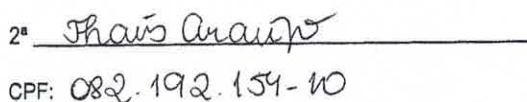 2ª Thaís Araujo
CPF: 082.192.154-10